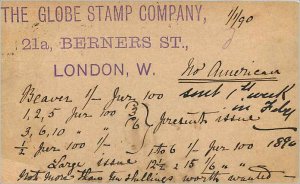 THE GLOBE STAMP COMPANY,
1/1/90
21a, BERNERS ST.,
LONDON, W.
No American
sent 1st week
in Feby
Beaver 1/- per 100
1, 2, 5 per 100
3, 6, 10 " "
3/6
presents issue
1/2 per 100 1 to 6 1/- per 100 1890
Large issue 12½ to 15 1/6 " "
Not more than ten shillings worth wanted